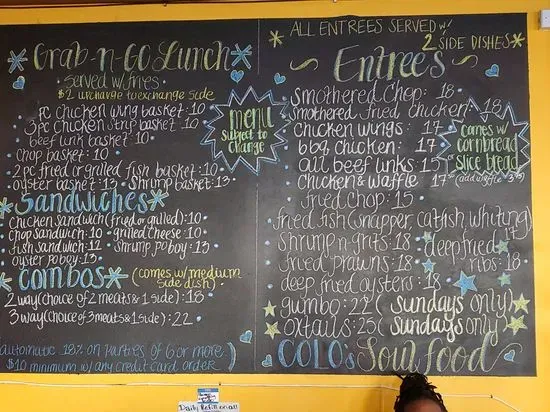 Grab-n-Go Lunch
Served w/fries
$2 upcharge to exchange side
pc chicken wing basket: 10
3pc chicken strip basket: 10
beef link basket: 10
chop basket: 10
2 pc fried or grilled fish basket: 10
oyster basket: 13 Shrimp basket: 13
menu
subject to
change
Sandwiches
Chicken sandwich (fried or grilled): 10
Chop sandwich: 10 grilled cheese: 10
fish sandwich: 12 Shrimp po boy: 13
oyster po boy: 13
Combos
(comes w/ medium
side dish)
2 way (choice of 2 meats & 1 side): 18
3 way (choice of 3 meats & 1 side): 22
automatic 18% on parties of 6 or more
$10 minimum w/ any credit card order
ALL ENTREES SERVED w/
2 SIDE DISHES
Entrees
Smothered Chop: 18
Smothered fried chicken: 18
Chicken wings: 17
bbq chicken: 17
all beef links: 15
Chicken & waffle 17
(add waffle
comes w/
cornbread
slice bread
fried chop: 15
fried fish (snapper catfish, whiting)
17
Shrimp n grits: 18
deep fried
ribs: 18
fried prawns: 18
deep fried oysters: 18
gumbo: 22 (Sundays only)
oxtails: 25 (Sundays only)
COLO's Soul food
Daily Refill on all